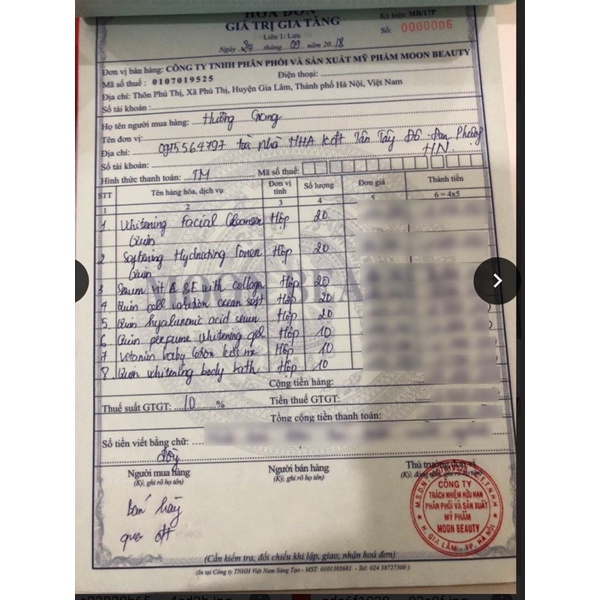 HÓA ĐƠN
GIÁ TRỊ GIA TĂNG
Liên 1: Lưu
Ký hiệu: MB/17P
Số: 0000006
Ngày 24 tháng 09 năm 2018
Đơn vị bán hàng: CÔNG TY TNHH PHÂN PHỐI VÀ SẢN XUẤT MỸ PHẨM MOON BEAUTY
Mã số thuế : 0107019525 Điện thoại:
Địa chỉ: Thôn Phú Thị, Xã Phú Thị, Huyện Gia Lâm, Thành phố Hà Nội, Việt Nam
Số tài khoản:
Họ tên người mua hàng: Hường
Tên đơn vị:
Địa chỉ: 0975564797 toà nhà MHA Tân Tây Đô - Đan Phượng
HN
Số tài khoản:
Hình thức thanh toán: TM Mã số thuế:
STT Tên hàng hóa, dịch vụ Đơn vị tính Số lượng Đơn giá Thành tiền
1 2 3 4 5 6 = 4x5
1 Whitening Facial Cleanser Hộp 20
Quin
2 Hydrating Toner Hộp 20
Quin
3 Serum vit A & E with collagen Hộp 20
4 Quin cell Hộp 20
5 Quin hyaluronic acid serum Hộp 20
6 Quin perfume whitening gel Hộp 10
7 Vitamin baby lotion kiss me Hộp 10
8 Quin whitening body bath Hộp 10
Cộng tiền hàng:
Thuế suất GTGT: 10 % Tiền thuế GTGT:
Tổng cộng tiền thanh toán:
Số tiền viết bằng chữ:
Người mua hàng Người bán hàng Thủ trưởng đơn vị
(Ký, ghi rõ họ tên) (Ký, ghi rõ họ tên)
Bán hàng
qua ĐT
CÔNG TY
TRÁCH NHIỆM HỮU HẠN
PHÂN PHỐI VÀ SẢN XUẤT
MỸ PHẨM
MOON BEAUTY
H. GIA LÂM - TP. HÀ NỘI
(Cần kiểm tra, đối chiếu khi lập, giao, nhận hoá đơn)
(In tại Công ty TNHH Việt Nam Sáng Tạo - MST: 0101303681 - Tel: 024 38727300 )
MOON BEAUTY